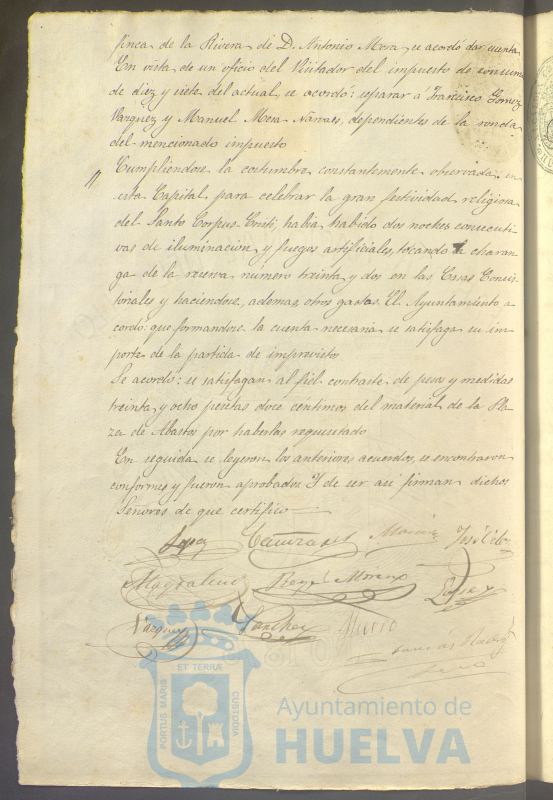 finca de la Rivera de D. Antonio Mora, se acordó dar cuenta
En vista de un oficio del Visitador del impuesto de consumos
de diez y siete del actual, se acordó: separar á Francisco Gomez
Vazquez y Manuel Mera Narvaes, dependientes de la ronda
del mencionado impuesto
Cumpliendose la costumbre, constantemente observada en
esta Capital, para celebrar la gran festividad religiosa
del Santo Corpus Cristi, habia habido dos noches consecuti
vas de iluminacion y fuegos artificiales, tocando la charan
ga de la reserva numero treinta y dos en las Casas Consis
toriales y haciendose, ademas, otros gastos. El Ayuntamiento a
cordó: que formandose la cuenta necesaria se satisfaga su im
porte de la partida de imprevistos
Se acordó: se satisfagan al fiel contraste de pesos y medidas
treinta y ocho pesetas doce centimos del material de la Pla
za de Abastos por haberlas requisitado
En seguida se leyeron los anteriores acuerdos, se encontraron
conformes y fueron aprobados. Y de ser asi firman dichos
Señores de que certifico
Lopez
José
Magdalena
Moreno
Lopez
Vazquez Sanchez
ET TERRÆ
PORTUS MARIS
CUSTODIA
Ayuntamiento de
HUELVA